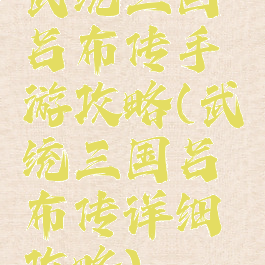 武统三国
吕布传手
游攻略(武
统三国吕
布传详细
攻略)